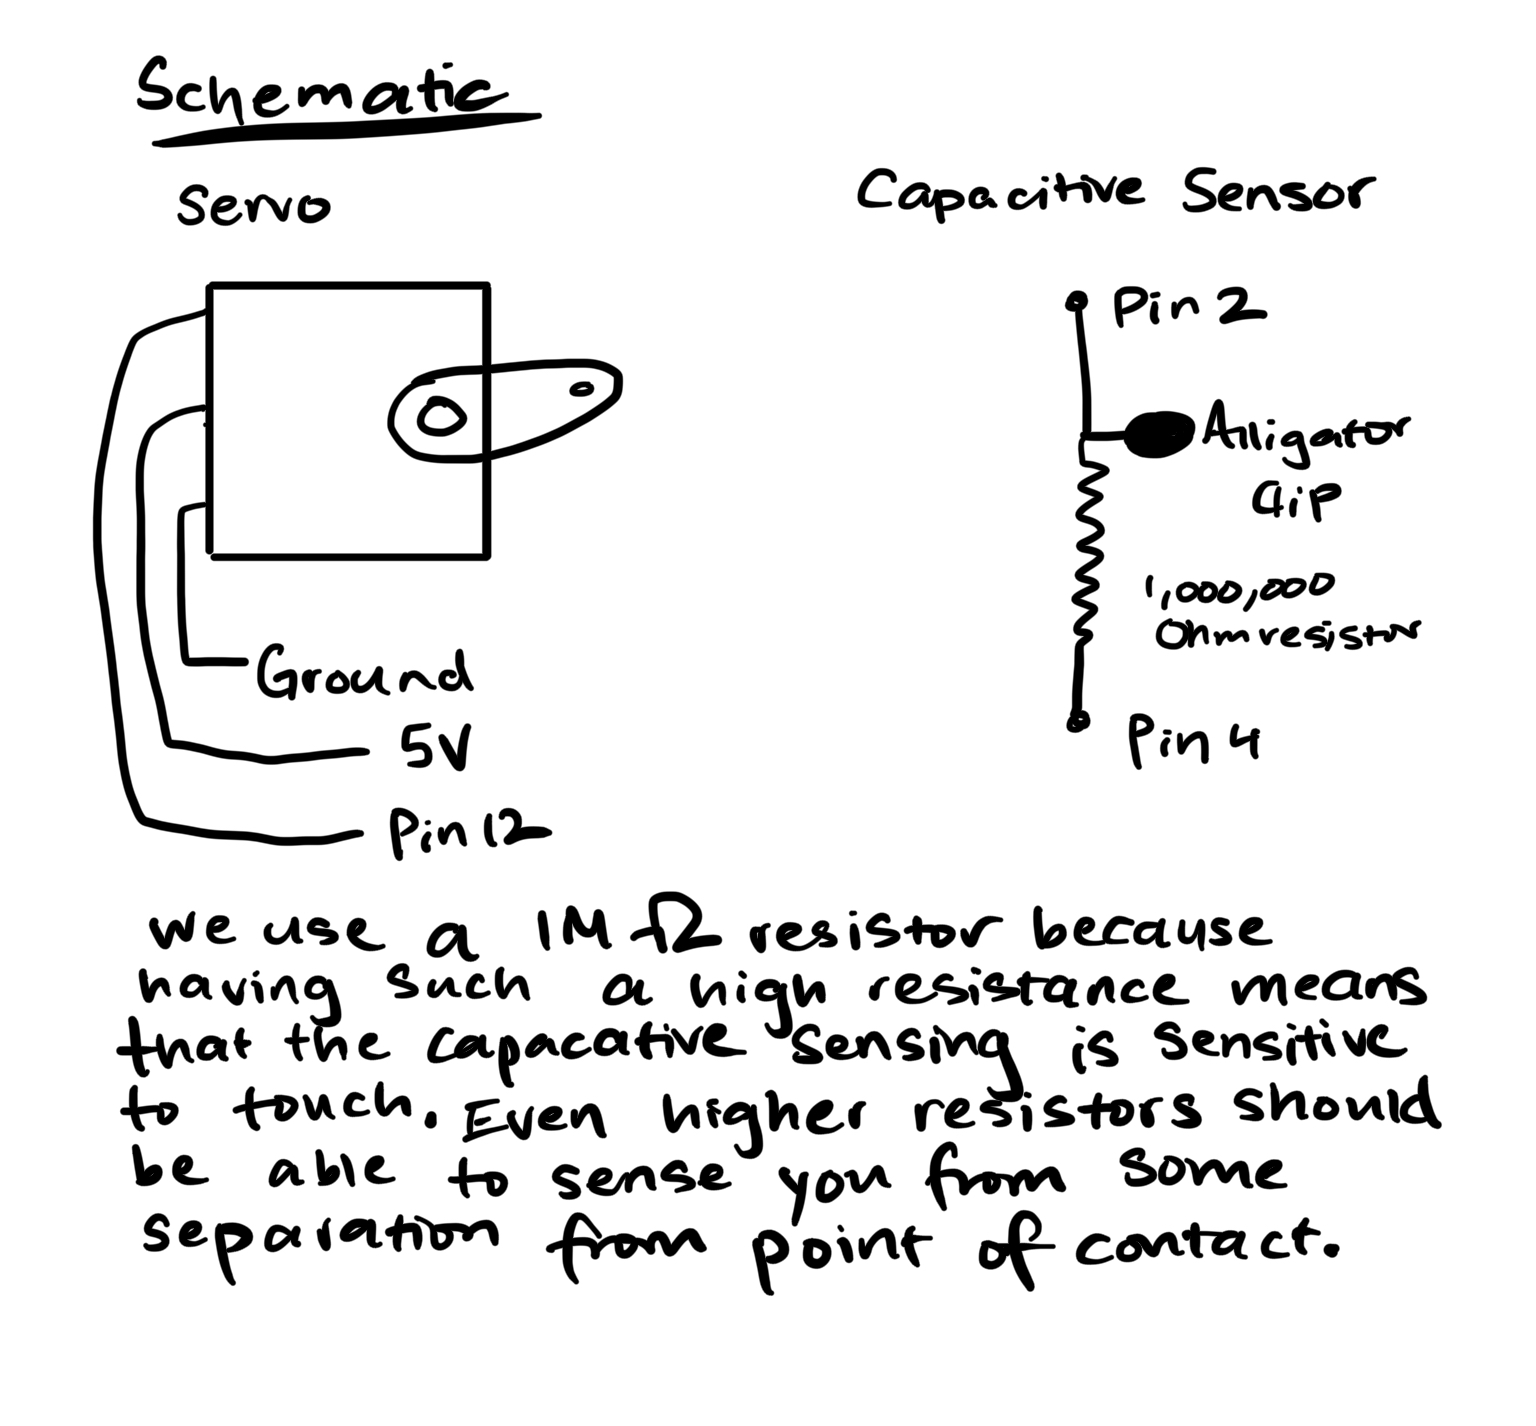 Schematic
Servo
Capacitive Sensor
Pin 2
Alligator
Clip
1,000,000
Ohm resistor
Pin 4
Ground
5V
Pin 12
we use a 1MΩ resistor because
having such a high resistance means
that the capacative sensing is sensitive
to touch. Even higher resistors should
be able to sense you from some
separation from point of contact.